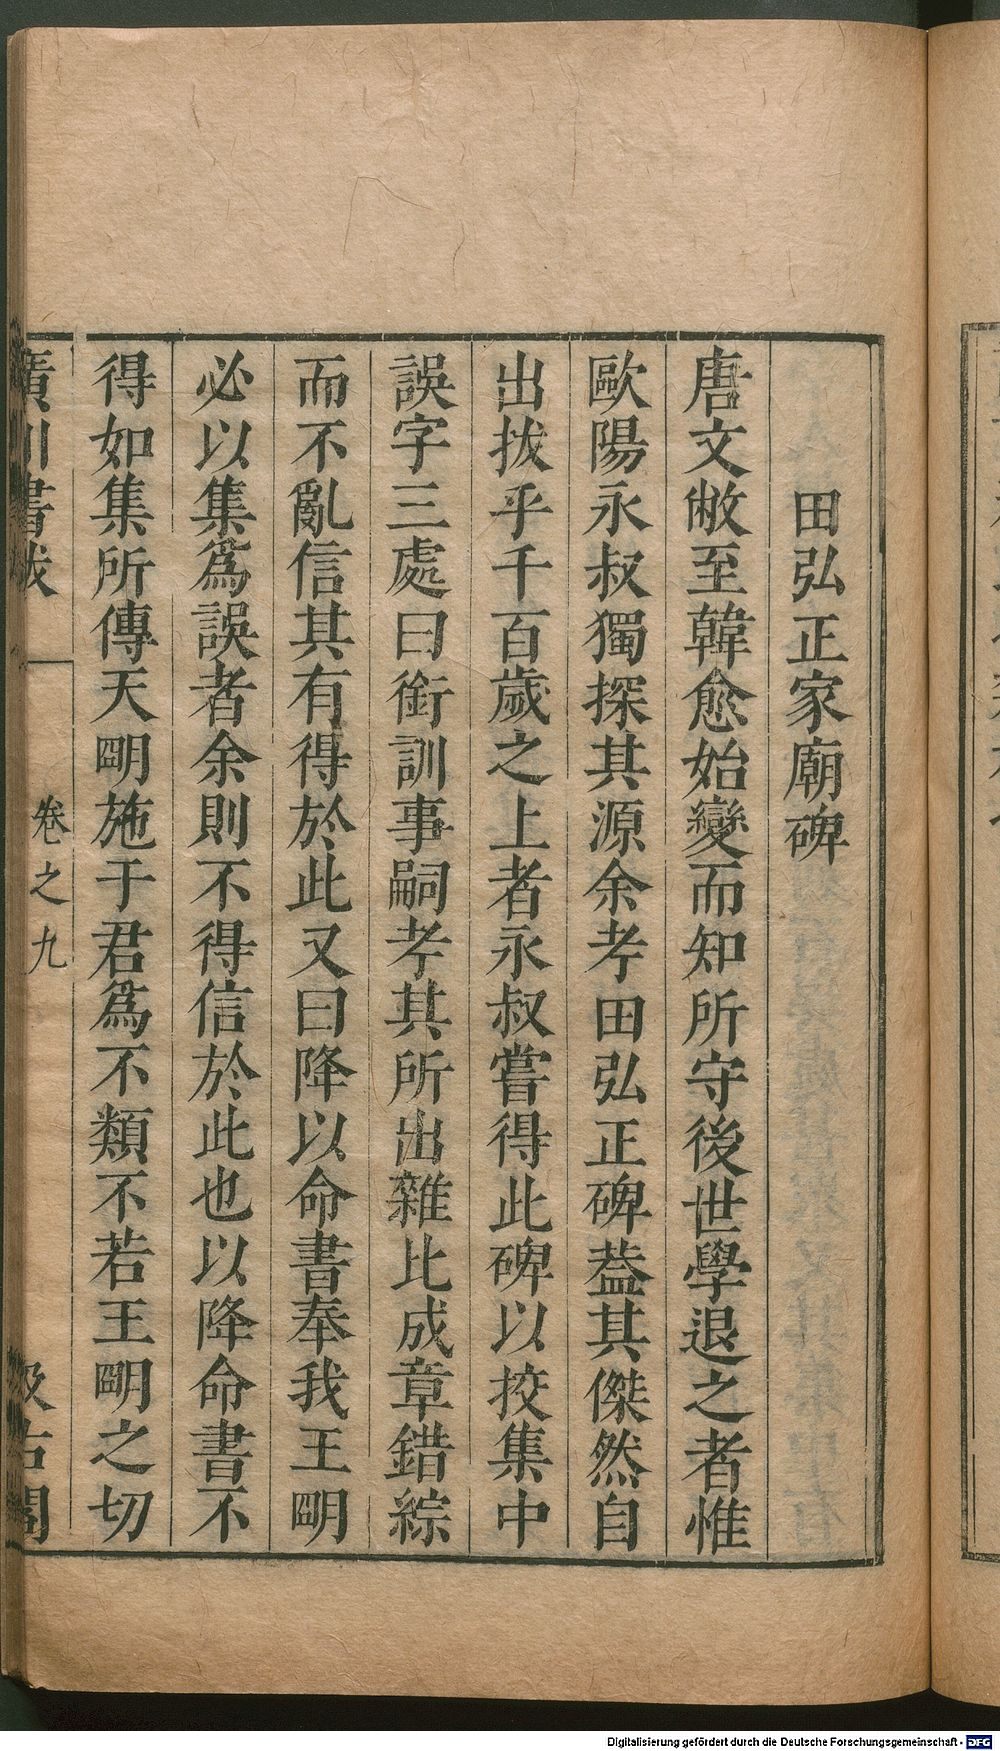 田弘正家廟碑
唐文敝至韓愈始變而知所守後世學退之者惟
歐陽永叔獨探其源余考田弘正碑葢其傑然自
出拔乎千百歲之上者永叔嘗得此碑以挍集中
誤字三處曰銜訓事嗣孝其所出雜比成章錯綜
而不亂信其有得於此又曰降以命書奉我王明
必以集爲誤者余則不得信於此也以降命書不
得如集所傳天明施于君爲不類不若王明之切
廣川書跋 卷之九 汲古閣
Digitalisierung gefördert durch die Deutsche Forschungsgemeinschaft - DFG